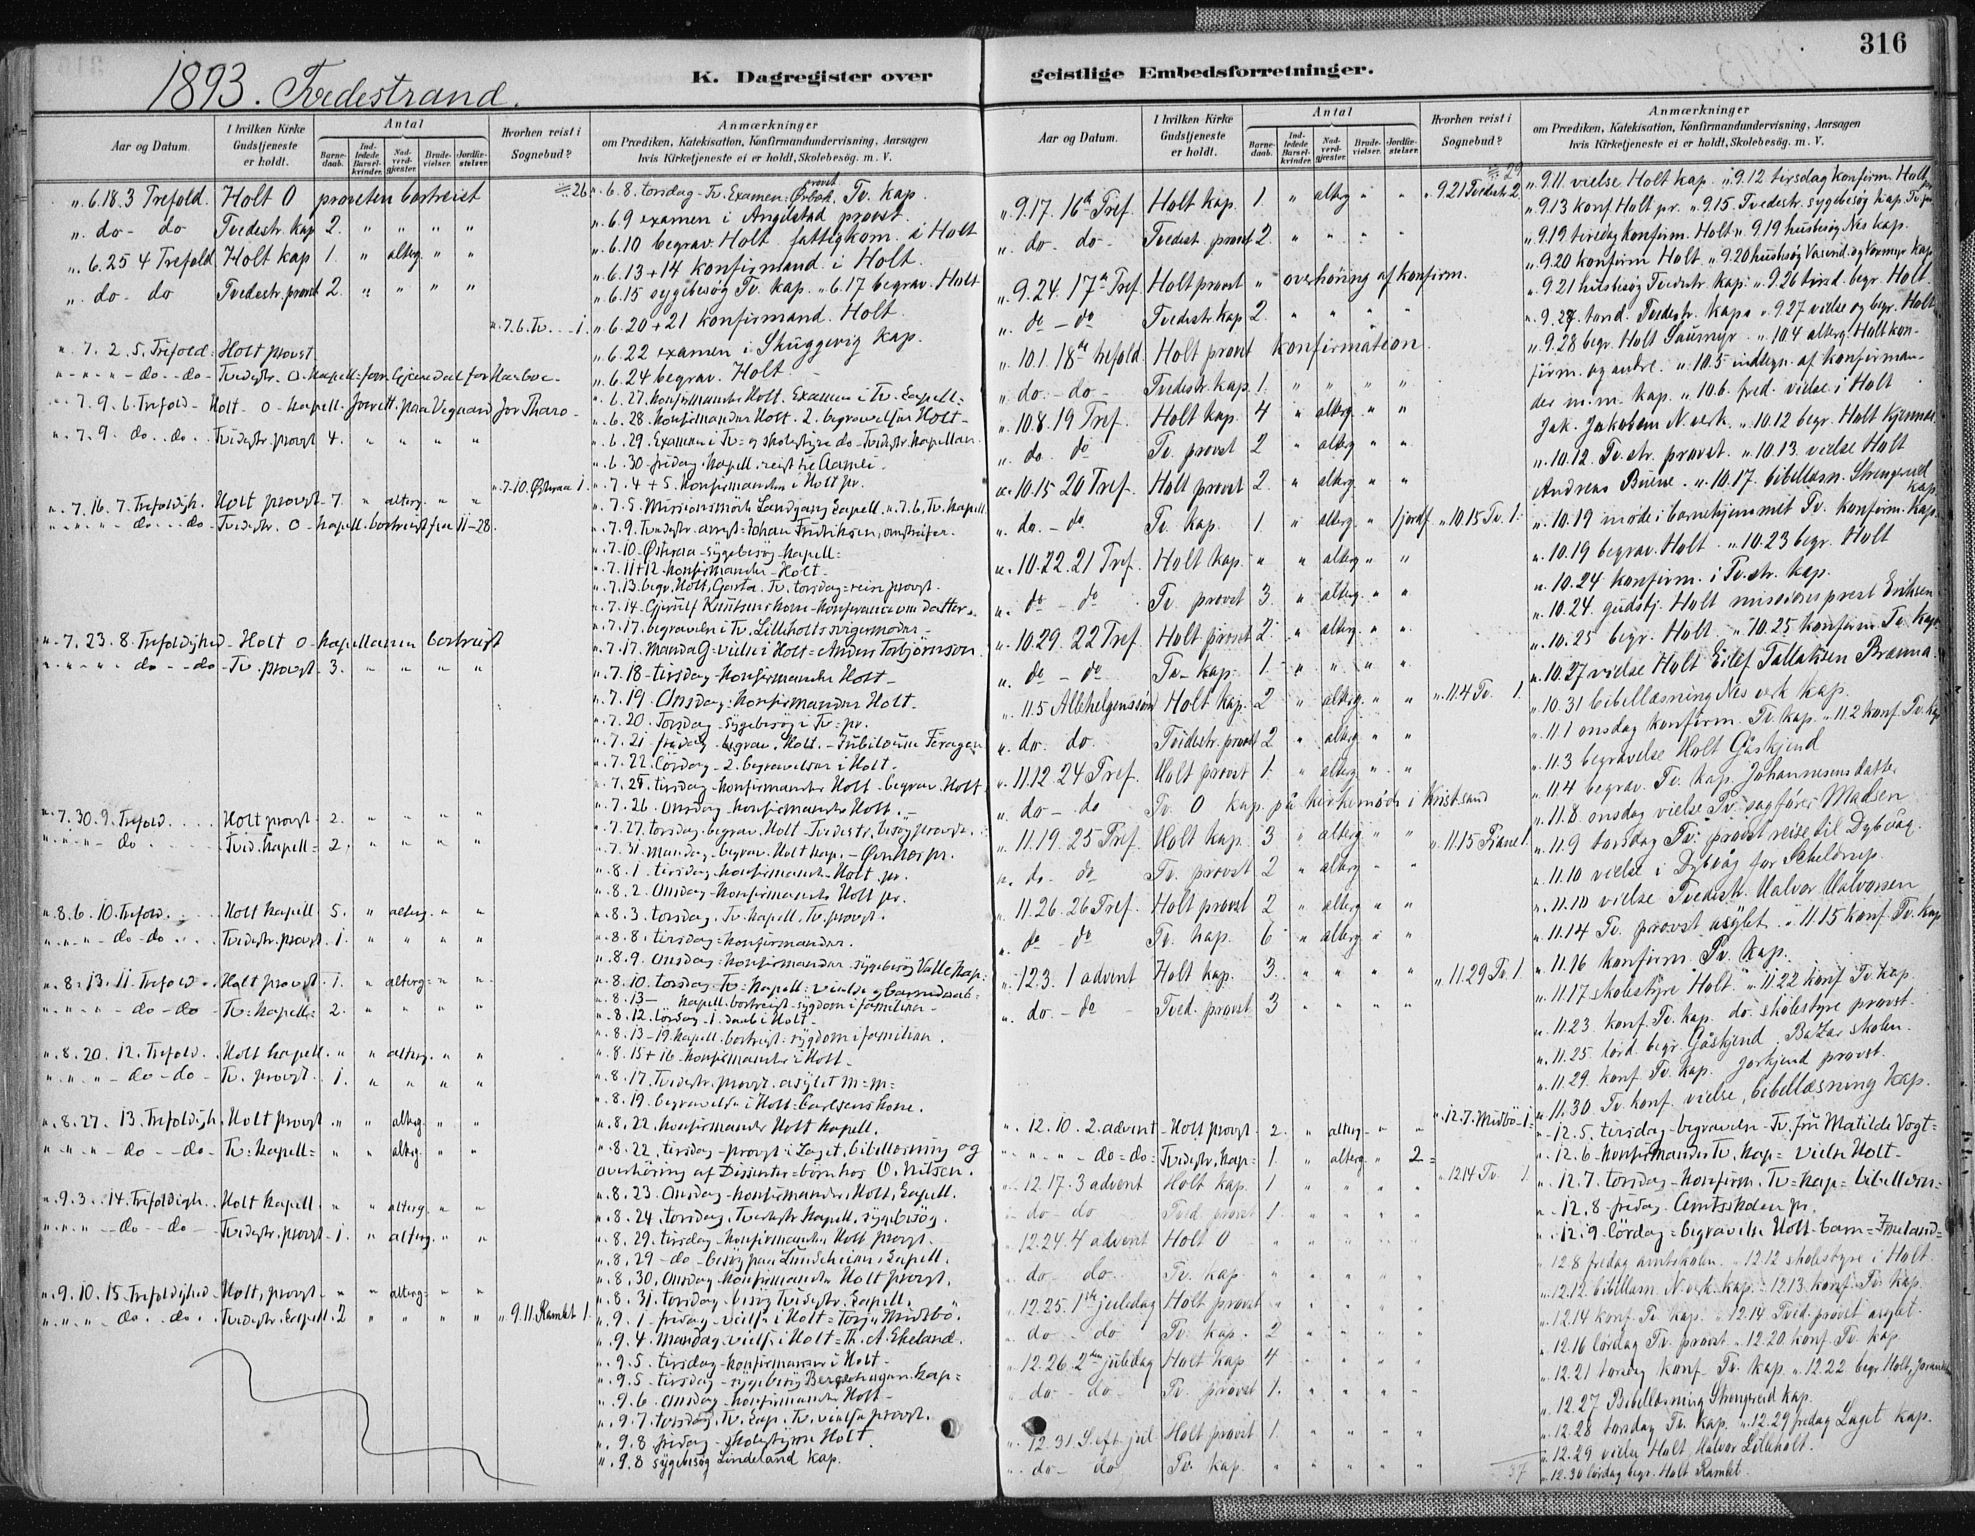 316
1893. Tvedestrand.
K. Dagregister over
Aar og Datum.
I hvilken Kirke Gudstjeneste er holdt.
Antal
Barnedaab.
Indledede Barselkvinder.
Nadverdgjester.
Brudevielser.
Jordfæstelser.
Hvorhen reist i Sognebud?
Anmærkninger
om Prædiken, Katekisation, Konfirmandundervisning, Aarsagen
hvis Kirketjeneste ei er holdt, Skolebesøg. m. V.
" 6.18. 3 Trefold. Holt O provsten bortreist
" do - do Tvedestr. kap 2. " " " "
" 6.25 4 Trefold Holt kap 1. " alterg. " "
" do - do Tvedestr. provst 2. " " " "
" 7.6. Tv. 1.
" 7. 2. 5. Trefold. Holt provst
" 7. 9. 6. Trefold - Holt - O - kapell.
" 7. 9. do. do. Tvedestr. provst 4. " " " "
" 7.10. Østeraa 1.
" 7. 16. 7. Trefoldigh. Holt provst - 7. " alterg. " "
" do - do - Tvedestr. O - kapell. bortreist fra 11-28.
" 7. 23. 8. Trefoldighed - Holt O kapellanen bortreist
" do - do - Tv. provst - 3. " " " "
" 7. 30. 9. Trefold. Holt provst - 2. " " " "
" do. Tved. kapell = 2. " " " "
" 8. 6. 10. Trefold. Holt kapell 5. " alterg. " "
" do - do. Tvedestr. provst. 1. " " " "
" 8. 13. 11. Trefold. Holt provst 1. " alterg. " "
" do - do Tv. kapell = 2. " " " "
" 8. 20. 12. Trefold. Holt kapell. " " alterg. " "
" do - do - Tv. provst. 1. " " " "
" 8. 27. 13. Trefoldigh. Holt provst " " alterg. " "
" do - do - Tv. kapell = " " alterg. " "
" 9. 3. 14. Trefoldigh. Holt kapell " " alterg. " "
" do - do - Tvedestr. provst 1. " alterg. " "
" 9. 10. 15. Trefoldighed - Holt, provst - " " alterg = " "
" do. do. Tvedestr. Capell. 2 " " " " " 9.11. Ramlet 1.
" 6. 8. torsdag - Tv. Examen. provst Tv. kap.
" 6.9 examen i Angelstad provst.
" 6.10 begrav. Holt fattigkom. i Holt
" 6.13 + 14 konfirmand. i Holt.
" 6.15 sygebesøg Tv. kap. " 6.17 begrav. Holt
" 6.20 + 21 konfirmand. Holt.
" 6.22 examen i Skuggevig kap.
" 6.24 begrav. Holt -
" 6. 27. konfirmander Holt. Examen i Tv. Capell =
" 6. 28. konfirmander Holt. 2. begravelser Holt -
" 6. 29. Examen i Tv = og skolestyre do - Tvedestr. kapellan.
" 6. 30 - fredag. kapell. reist til Aamli.
" 7. 4 + 5. konfirmander i Holt pr.
" 7. 5. Missionsmøde Landgang Capell. " 7.6. Tv. kapell.
" 7. 9. Tvedestr. arrest = Johan Fredriksen, omstreifer.
" 7. 10. Østeraa - sygebesøg - kapell =
" 7. 11 + 12 konfirmander - Holt -
" 7. 13. begr. Holt, Garta. Tv. torsdag = reise provst.
" 7. 17. begravelse i Tv. Lilleholts svigermoder -
" 7. 17. Mandag = vielse i Holt = Anders Torbjørnson
" 7. 18 - tirsdag - konfirmander Holt -
" 7. 19. Onsdag = konfirmander Holt.
" 7. 20. Torsdag - sygebesøg i Tv = pr.
" 7. 21. fredag - begrav. Holt. - Jubilæum
" 7. 22. Lørdag - 2. begravelser i Holt -
" 7. 25. tirsdag - konfirmander Holt - begrav. Holt
" 7. 26. Onsdag - konfirmander Holt. -
" 7. 27. torsdag - begrav. Holt - Tvedestr. besøg
" 7. 31. Mandag - begrav. Holt kap. -
" 8. 1. tirsdag - konfirmander Holt, pr.
" 8. 2. Onsdag - konfirmander Holt pr.
" 8. 3. torsdag. Tv. kapell, Tv. provst.
" 8. 8. tirsdag = konfirmander.
" 8. 9. Onsdag = konfirmander. sygebesøg Valle kap.
" 8. 10. torsdag Tv = kapell = vielse og barnedaab =
" 8. 13 - kapell - bortreist - sygdom i familien -
" 8. 12. Lørdag - 1. daab i Holt -
" 8. 13 - 19. kapell - bortreist - sygdom i familien.
" 8. 15 + 16 - konfirmander i Holt -
" 8. 17. Tvedestr. provst. asylet m = m =
" 8. 19. begravelse i Holt = Carlsens kone.
" 8. 22. konfirmander Holt kapell.
" 8. 22. tirsdag - provst i Laget, bibellæsning og
overhøring af Dissenter = børn hos O. Nilsen.
" 8. 23. Onsdag - konfirmander, Holt, Capell.
" 8. 24. torsdag. Tvedestr. kapell. sygebesøg.
" 8. 29. tirsdag - konfirmander Holt provst.
" 8. 29 - do - besøg paa Lundeheim, Capell.
" 8. 30. Onsdag - konfirmander Holt provst.
" 8. 31. torsdag. besøg Tvedestr. Capell.
" 9. 1 - fredag - vielse i Holt = Torju Midtbø.
" 9. 4. Mandag - vielse i Holt = Th. A. Ekeland.
" 9. 5. tirsdag - konfirmander i Holt -
" 9. 5 - tirsdag - sygebesøg Bergshagen. Kap =
" 9. 6 Onsdag - konfirmander Holt -
" 9. 7. torsdag. Tv. Cap. Tv. vielse provst.
" 9. 8 fredag - skolestyre Holt.
" 9. 8 sygebesøg Lindeland kap.
geistlige Embedsforretninger.
Aar og Datum.
I hvilken Kirke Gudstjeneste er holdt.
Antal
Barnedaab.
Indledede Barselkvinder.
Nadverdgjester.
Brudevielser.
Jordfæstelser.
Hvorhen reist i Sognebud?
Anmærkninger
om Prædiken, Katekisation, Konfirmandundervisning, Aarsagen
hvis Kirketjeneste ei er holdt, Skolebesøg. m. V.
" 9.17. 16de Tref. Holt kap. 1. " alterg " " " 9.21 Tvedestr. 2
" do. do - Tvedest. provst 2 " " " "
" 9.24. 17de Tref. Holt provst " overhøring af konfirm.
" do - do Tvedestr. kap 2. " " " "
" 10.1 18de trefold. Holt provst konfirmation.
" do. - do - Tvedestr. kap. 1. " " " "
" 10.8. 19 Tref. Holt kap. 4 " alterg. " "
" do. do Tv. provst 2 " alterg " "
" 10.15 20 Tref. Holt provst 2. " alterg. " "
" do. - do Tv. kap. 1. " alterg. " 1 jordf. " 10.15 Tv. 1.
" 10.22. 21 Tref. Holt kap. " " alterg. " "
" do - do Tv. provst 3. " alterg. " "
" 10.29. 22 Tref. Holt provst 2. " alterg. " "
" do - do Tv - kap. 1. " " " "
" 11.5 Allehelgenssøn Holt kap. 2 " alterg. " " " 11.4 Tv. 1.
" do. do. Tvedestr. provst 2 " alterg. " "
" 11.12. 24 Tref. Holt provst 1. " alterg. " "
" do - do Tv. O kap. på kirkemøde i Krist.sand
" 11.19. 25 Tref. Holt kap. 3 " alterg. " " " 11.15 1.
" do - do Tv. provst 2 " alterg " "
" 11.26. 26 Tref. Holt provst 2 " alterg. " "
" do - do Tv. kap. 6 " alterg " "
" 12.3. 1 advent Holt kap. 3. " " " " " 11.29 Tv. 1.
" do. - do - Tved. provst 3 " " " "
" 12. 10. 2. advent - Holt provst - 2. " alterg - " " " 12.7. Midbø - 1 =
" do = do = Tvedestr. kap = 1. " alterg " 2 =
" 12.17. 3 advent Holt kap. 1 " " " " " 12.14 Tv. 1.
" do - do Tved provst 1. " " " "
" 12.24. 4 advent Holt O " " " "
" do - do. Tv. kap. " " " " "
" 12.25. 1ste juledag Holt provst " " " " "
" do - do Tv. kap. 2 " " " "
" 12.26. 2den juledag Holt kap 4 " " " "
" do - do - Tv. provst 1. " " " "
" 12.31 S. eft jul Holt provst 1. " " " "
" do - do Tv. kap. " " " " "
37
" 9.11. vielse Holt kap. " 9.12 tirsdag konfirm. Holt pr.
" 9.13 konf. Holt pr. " 9.15. Tvedestr. sygebesøg kap. Tv. pr.
" 9.19 tirsdag konfirm. Holt " 9.19 husbesøg Nes kap.
" 9.20 konfirm Holt. " 9.20 husbesøg
" 9.21 husbesøg Tvedestr. kap. " 9.26 tirsd. begr. Holt.
" 9.27 vielse og begr. Holt
" 9.28 begr. Holt " 10.4 alterg. Holt kon-
firm. og andre. " 10.5 indtegn. af konfirman-
der m.m. kap. " 10.6. fred. vielse i Holt
Jak. Jakobsen N. verk. " 10.12 begr. Holt
" 10.12. Tv.str. provst. " 10.13. vielse Holt
Andreas " 10.17. bibellæsn. Strengereid kap.
" 10.19 møde i barnehjemmet Tv. konfirm. kap.
" 10.19 begrav. Holt " 10.23 begr. Holt
" 10.24 konfirm. i Tv.str. kap.
" 10.24. gudstj. Holt missionsprest Eriksen
" 10.25 begr. Holt. " 10.25 konfirm. Tv. kap.
" 10.27 vielse Holt Eilef Tallaksen
" 10.31 bibellæsning Nes verk kap.
" 11.1 onsdag konfirm. Tv. kap. " 11.2 konf Tv. kap
" 11.3 begravelse Holt Gåskjend
" 11.4 begrav. Tv. kap. Johannesens datter
" 11.8 onsdag vielse Tv. sagfører Madsen
" 11.9 torsdag Tv. provst reise til Dybvåg.
" 11.10 vielse i Dybvåg for Scheldrup.
" 11.10 vielse Tvedestr. Halvor Halvorsen
" 11.14 Tv. provst asylet. " 11.15 konf. Tv. kap
" 11.16 konfirm. Tv. kap.
" 11.17 skolestyre Holt. " 11.22 konf. Tv. kap.
" 11.23. konf. Tv. kap. do. skolestyre provst.
" 11.25. lørd. begr. Gåskjend. Bazar skolen.
" 11.29. konf. Tv. kap. provst.
" 11.30. Tv. konf. vielse, bibellæsning kap.
" 12.5. tirsdag - begravelse - Tv. fru Matilde Vogt =
" 12.6 - konfirmander Tv. kap = vielse Holt -
" 12.7. torsdag - konfirm. Tv = kap = bibellæsn =
" 12.8 - fredag. Amtsskolen pr.
" 12.9 lørdag = begravelse Holt - barn =
" 12 8 fredag amtskolen. " 12.12 skolestyre i Holt.
" 12.12 bibellæsn. N. verk. kap. " 12.13. konf. Tv. kap.
" 12.14 konf. Tv kap. " 12.14 Tved. provst asylet.
" 12.16 lørdag Tv. provst " 12.20. konf. Tv. kap.
" 12.21 torsdag konf. Tv. kap. " 12.22 begr. Holt,
" 12.27 Bibellæsning Strengereid kap.
" 12.28 torsdag Tv. kap. " 12.29 fredag Laget kap.
" 12.29 vielse Holt Halvor Lilleholt.
" 12.30 lørdag begr. Holt Ramlet.